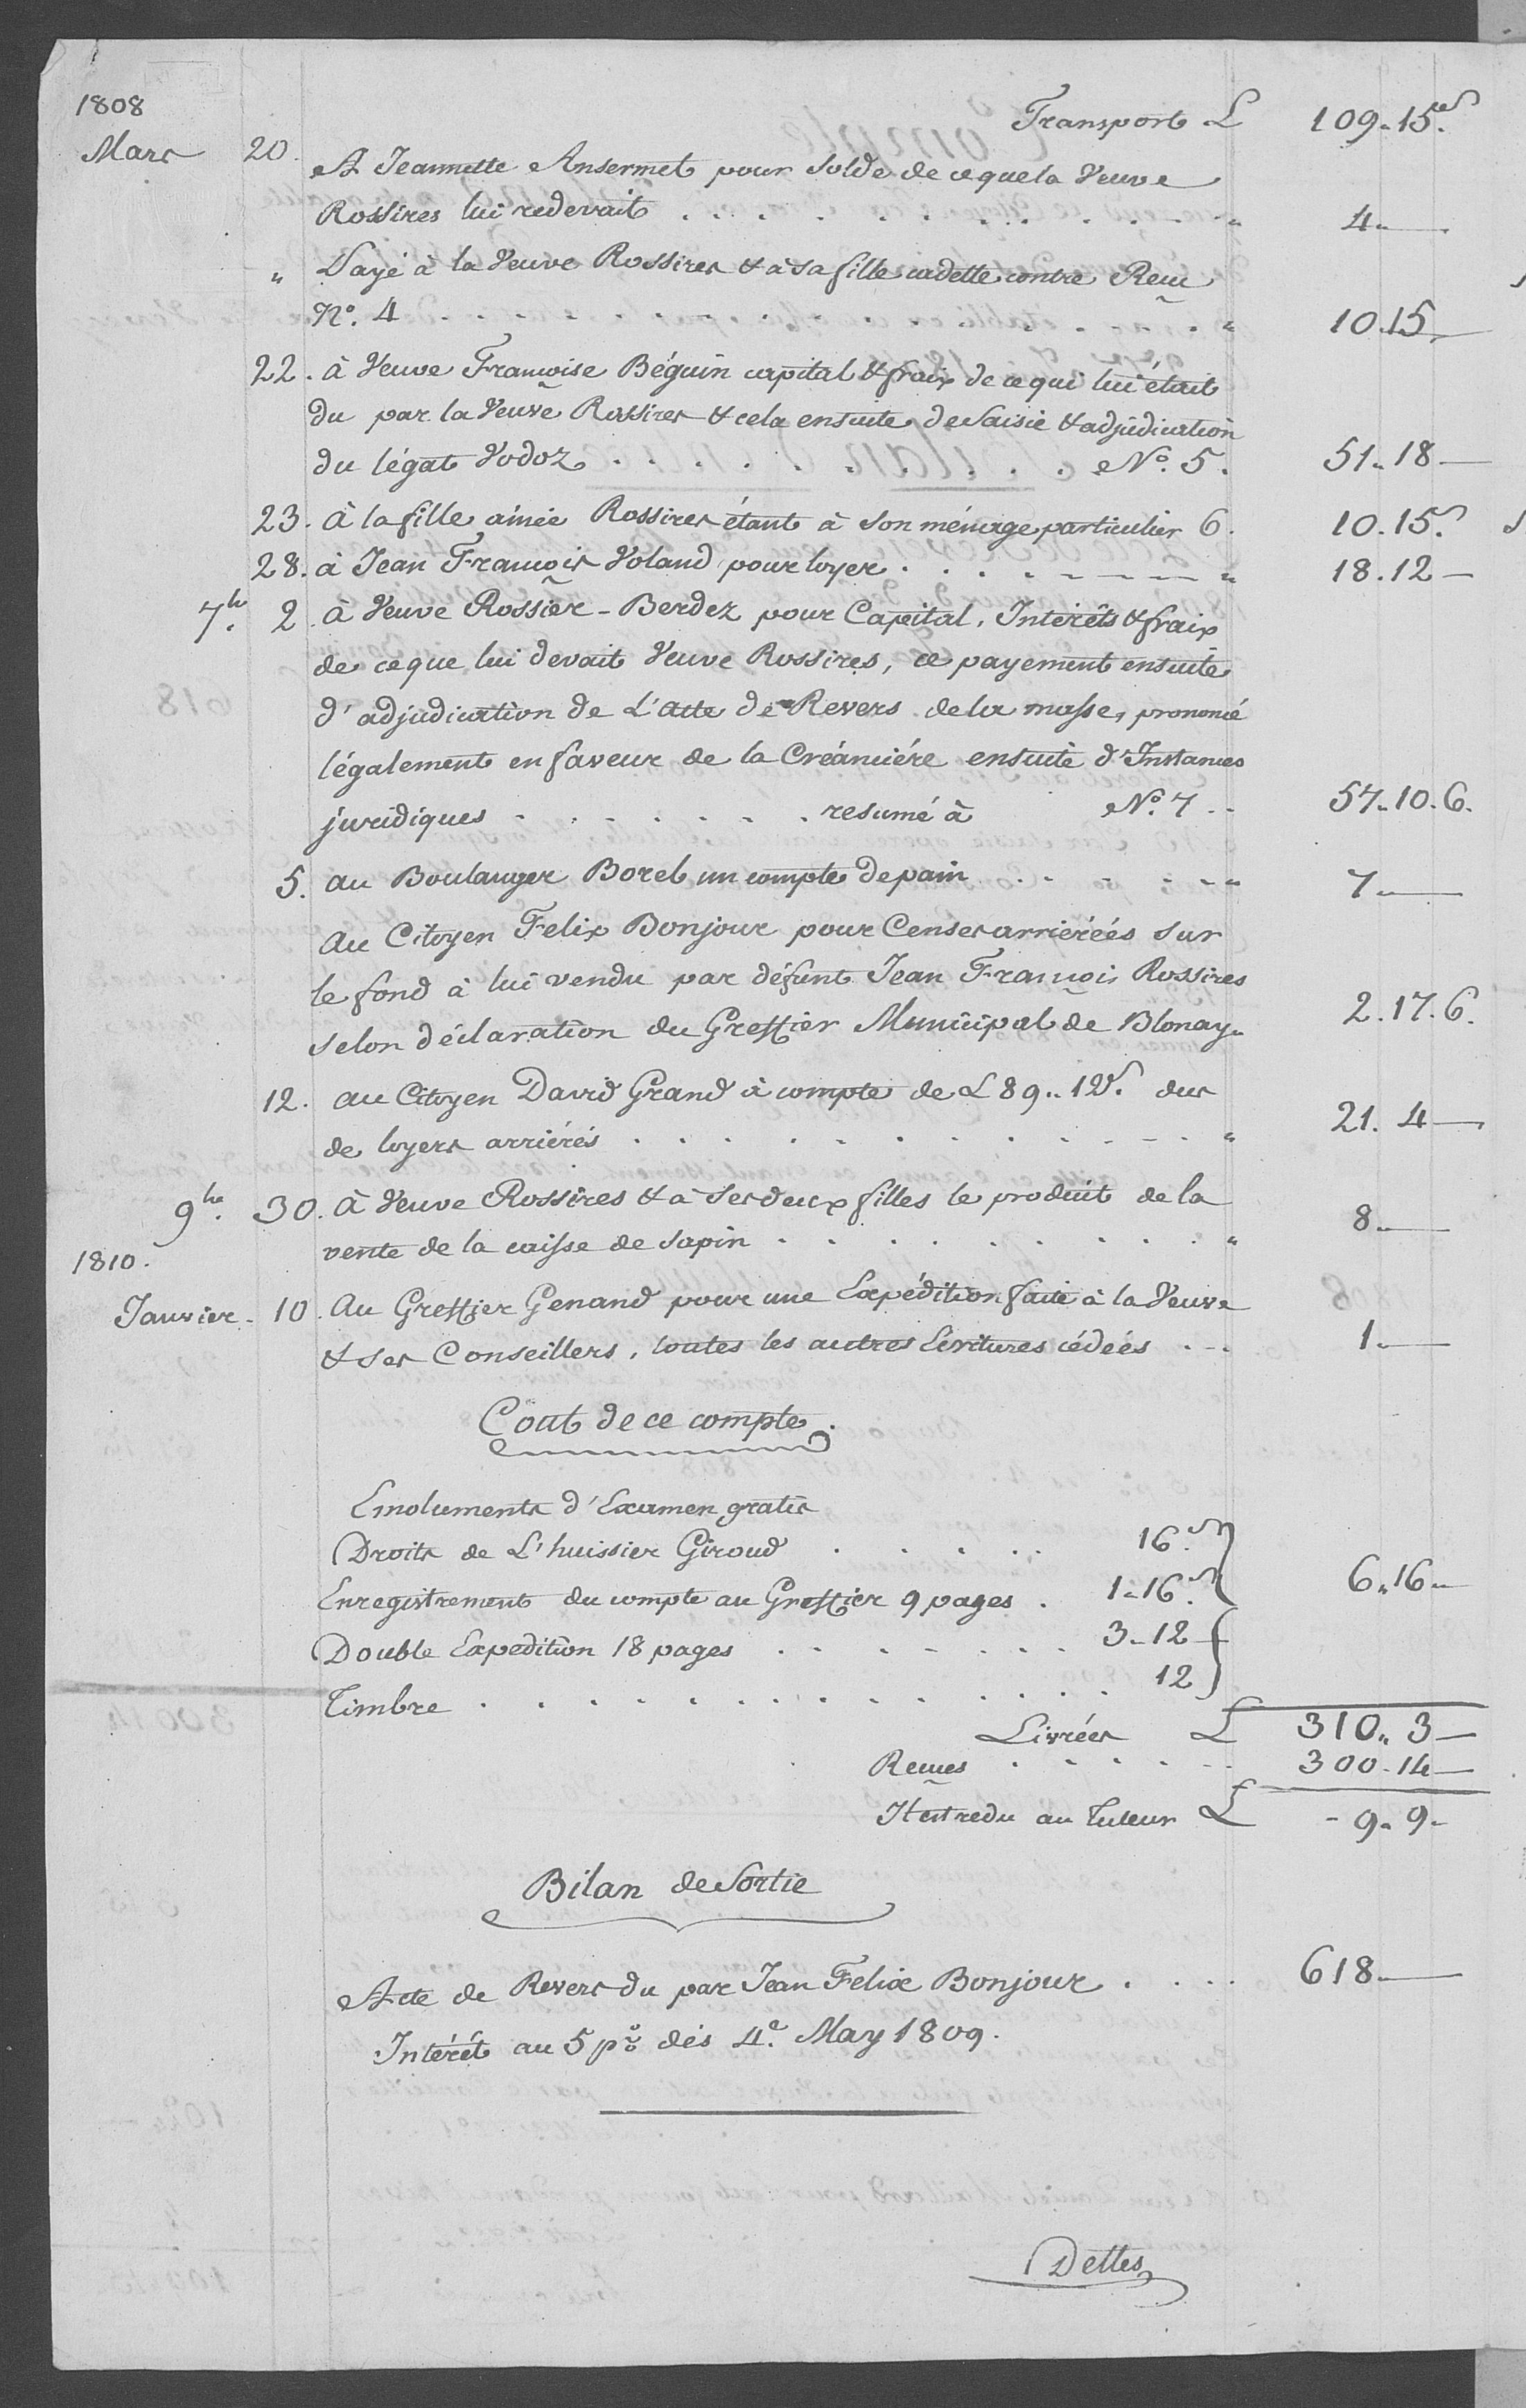 1808
Transport L 109.15.s
Mars 20. A Jeannette Ansermet pour solde de ce que la Veuve
Rossires lui redevait . . . . . " 4. —
" Payé à la Veuve Rossires & à sa fille cadette contre Reçu
No. 4 . . . . . " 10.15 —
22. à Veuve Françoise Béguin capital & fraix de ce qui lui était
du par la Veuve Rossires & cela ensuite de Saisie & adjudication
du légat Vodoz . . . . . No. 5. 51.18 —
23. à la fille ainée Rossires étant à son ménage particulier 6. 10.15.s
28. à Jean François Voland pour loyer . . . . . " 18.12 —
7.br 2. à Veuve Rossier-Berdez pour Capital, Intérêts & fraix
de ce que lui devait Veuve Rossires, ce payement ensuite
d'adjudication de L'acte de Revers de la masse, prononcé
légalement en faveur de la Créanciére ensuite d'Instances
juridiques . . . . . resumé à No. 7 . . 57.10.6.
5. au Boulanger Borel un compte de pain . . . . . " 7. —
Au Citoyen Felix Bonjour pour Censes arriéréés sur
le fond à lui vendu par défunt Jean François Rossires
selon déclaration du Greffier Municipal de Blonay " 2.17.6.
12. au Citoyen David Grand à compte de L 89.. 12s. dus
de loyers arriérés . . . . . " 21. 4 —
9.bre 30. à Veuve Rossires & à ses deux filles le produit de la
vente de la caisse de sapin . . . . . " 8. —
1810.
Janvier. 10. Au Greffier Genand pour une Expédition faite à la Veuve
& ses Conseillers, toutes les autres Ecritures cédées . . . 1. —
Cout de ce compte.
Emoluments d'Examen gratis
Droits de L'huissier Giroud . . . . . 16.s
Enregistrement du compte au Greffier 9 pages . 1.16.s 6.16 —
Double Expedition 18 pages . . . . . 3.12
Timbre . . . . . 12
Livrées L 310.. 3 —
Reçues . . . . . 300.14 —
Il est redu au Tuteur L - 9. 9 -
Bilan de Sortie
Acte de Revers du par Jean Felix Bonjour . . . . 618. —
Intérêt au 5 p% dés 4.e May 1809.
Dettes